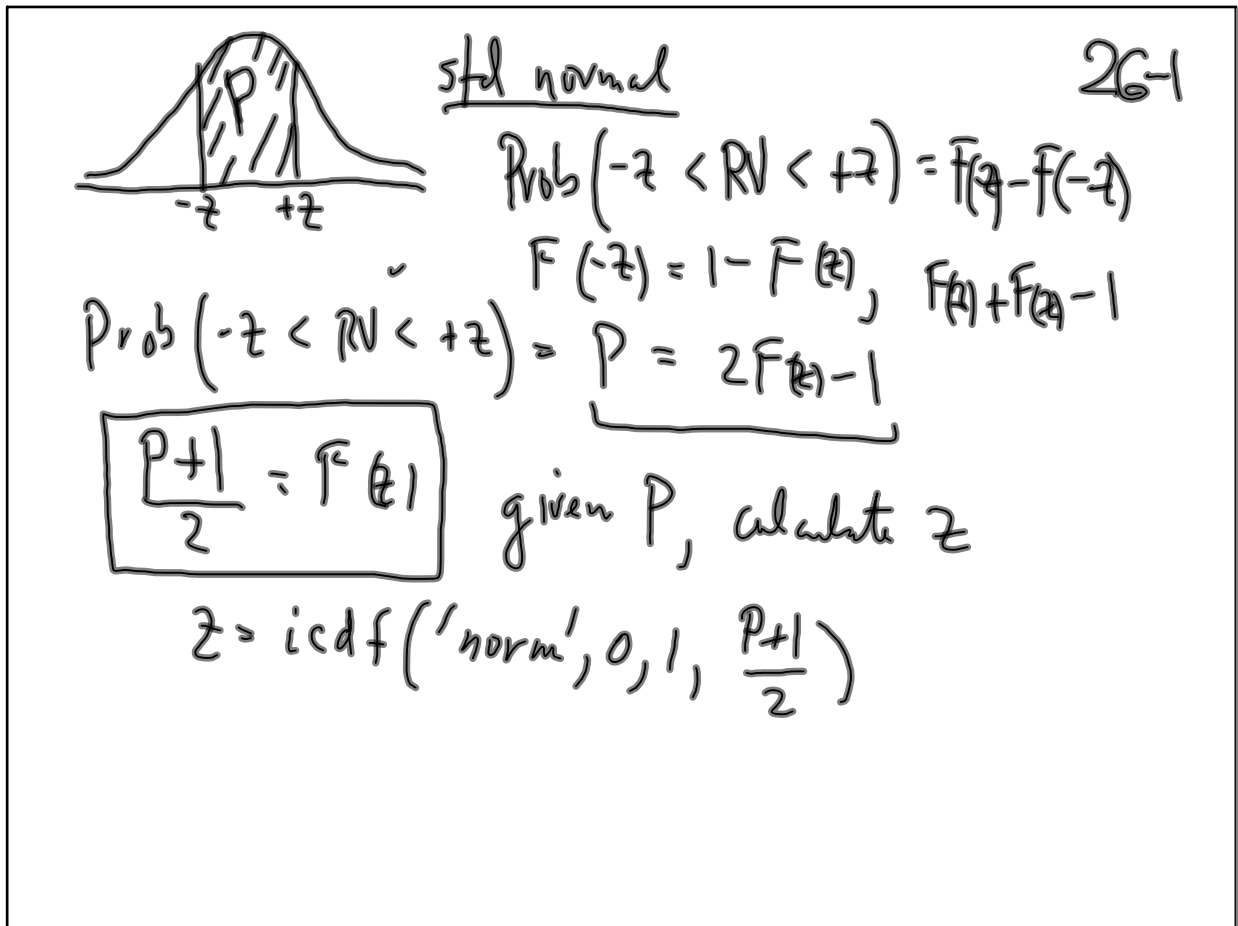 P
-z +z
std normal
26-1
Prob(-z < RV < +z) = F(z)-F(-z)
F(-z) = 1 - F(z), F(z)+F(z)-1
Prob(-z < RV < +z) = P = 2F(z)-1
P+1
2
= F(z)
given P, calculate z
z = icdf('norm', 0, 1, P+1
2
)